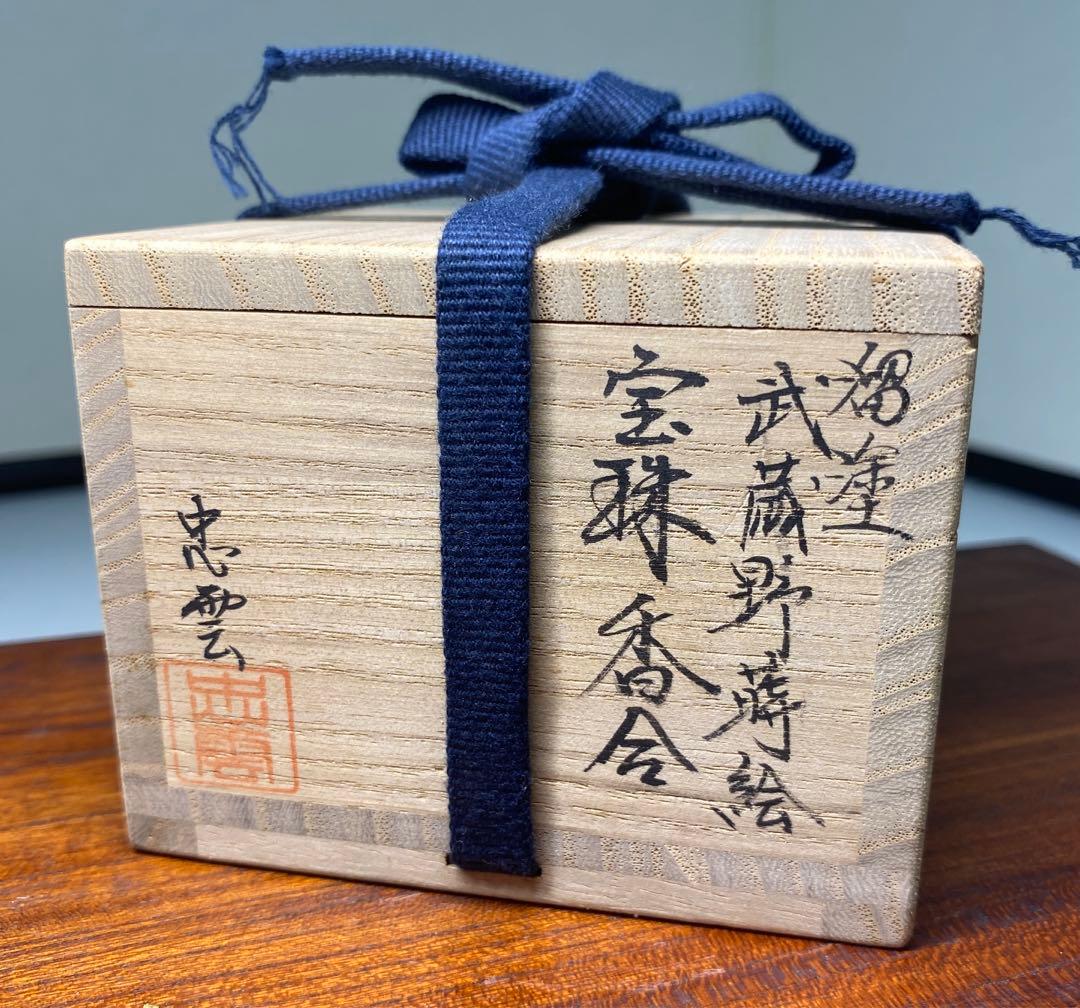 溜塗
武蔵野蒔絵
宝珠香合
忠雲
忠雲